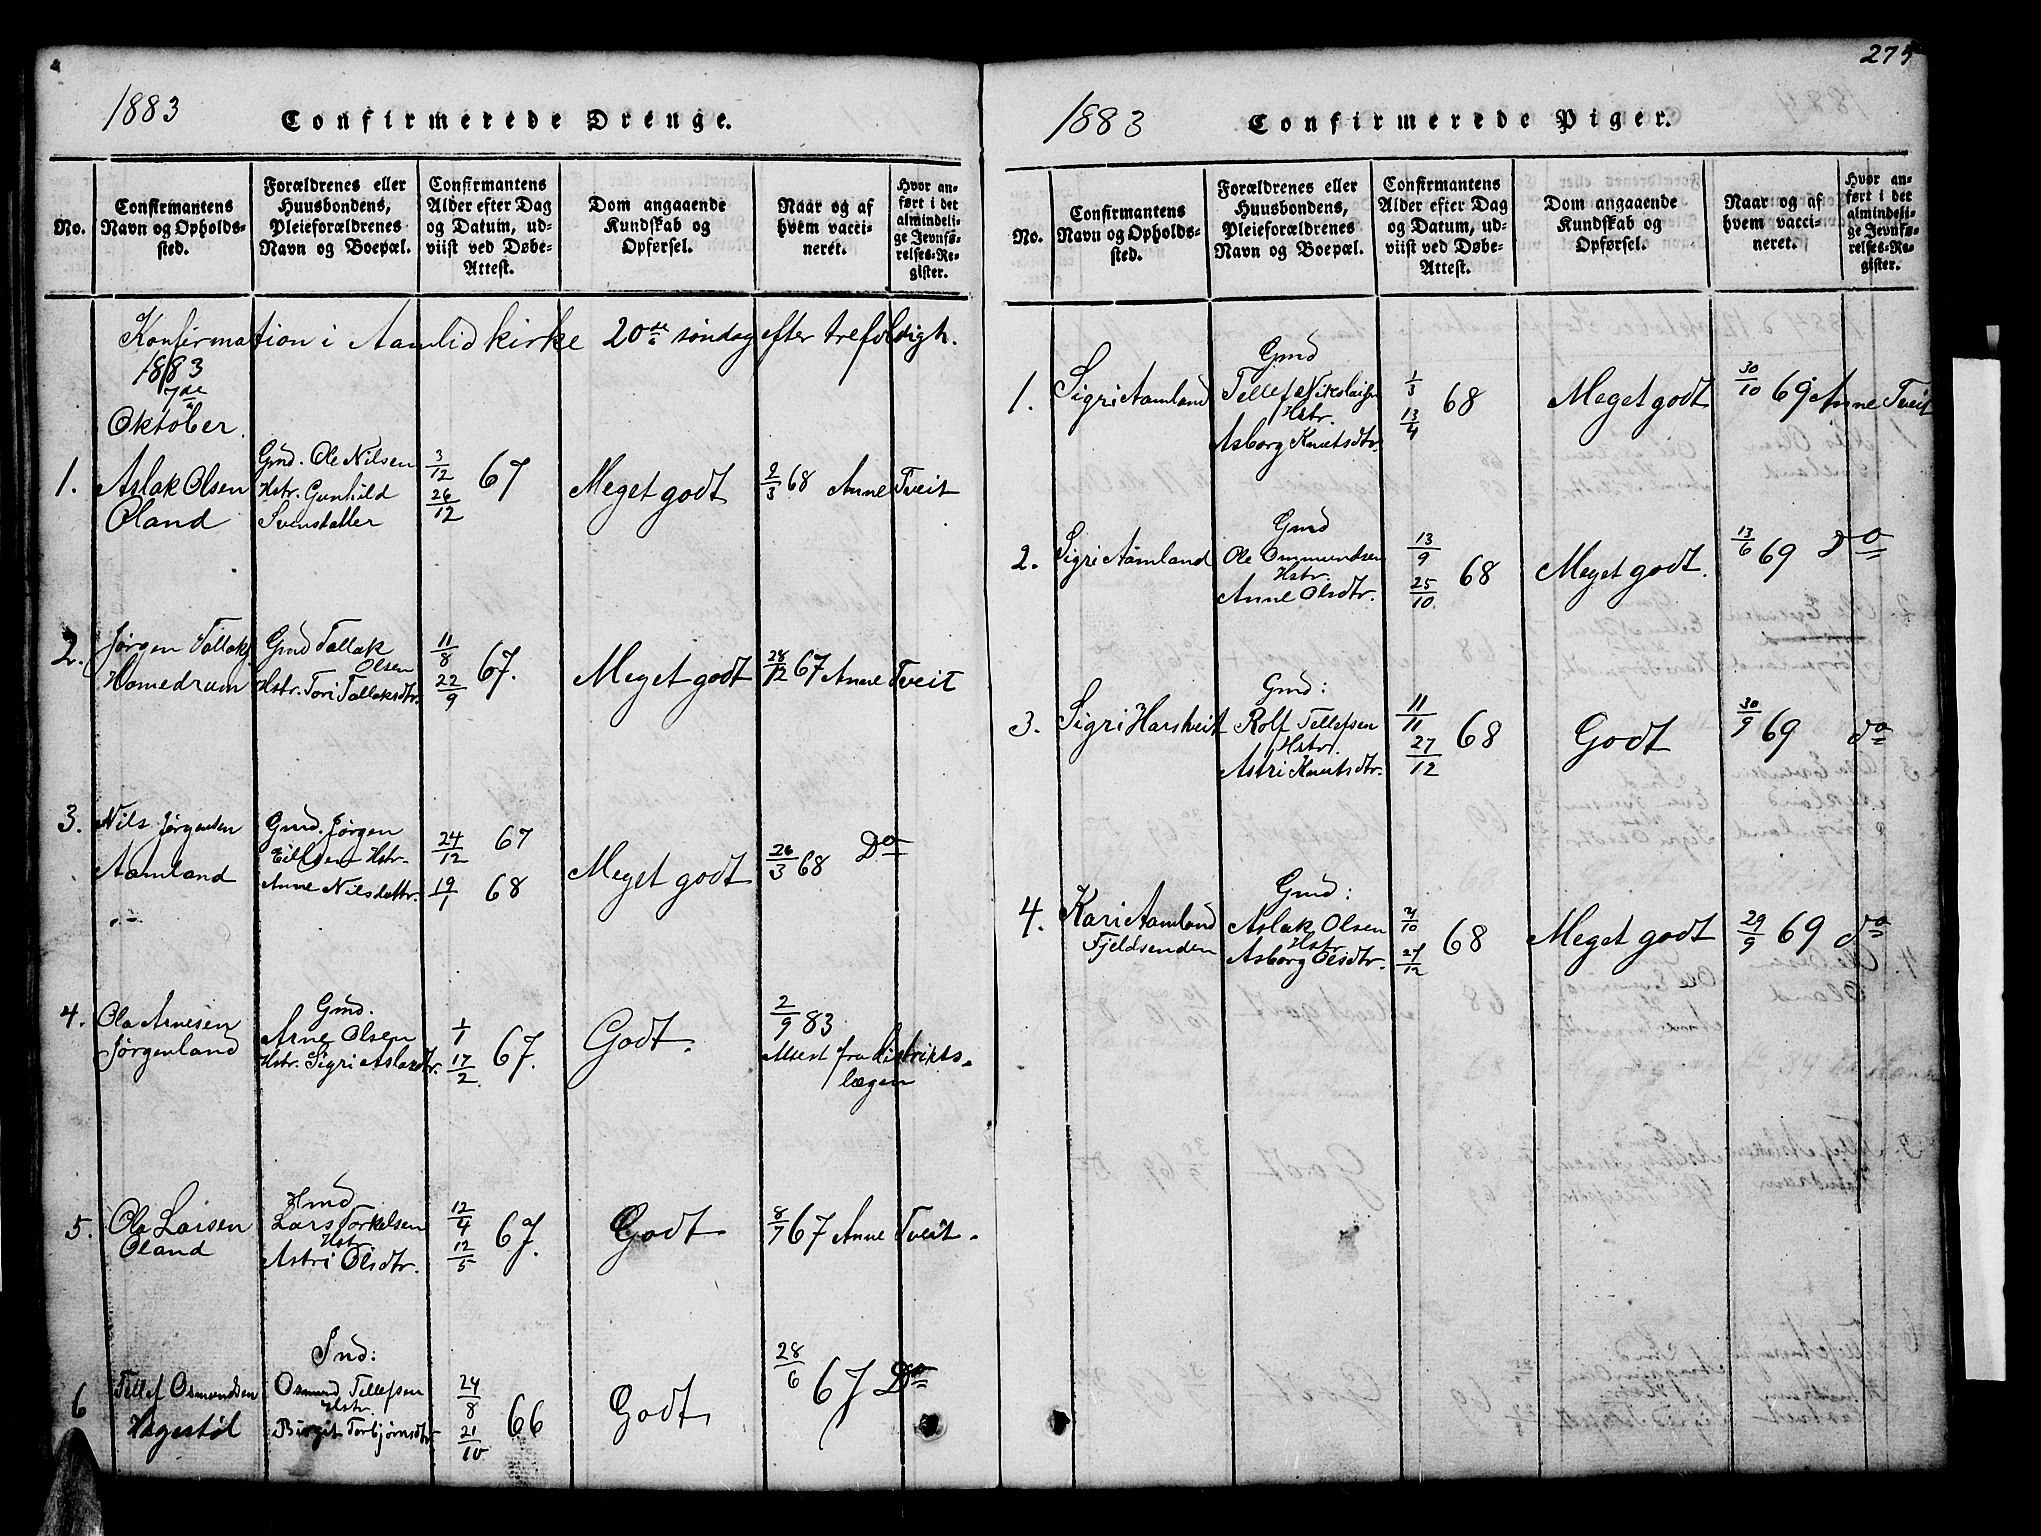 1883
Confirmerede Drenge.
No.
Confirmantens
Navn og Opholds-
sted.
Forældrenes eller
Huusbondens,
Pleieforældrenes
Navn og Boepæl.
Confirmantens
Alder efter Dag
og Datum, ud-
viist ved Døbe-
Attest.
Dom angaaende
Kundskab og
Opførsel.
Naar og af
hvem vacci-
neret.
Hvor an-
ført i det
almindeli-
ge Jevnfø-
relses-Re-
gister.
Konfirmation i Aamlid kirke 20de søndag efter trefoldigh.
1883
7de
Oktober.
1.
Aslak Olsen
Oland
Gmd. Ole Nilsen
Hstr. Gunhild
Svensdatter
3/12
26/12
67
Meget godt
2/3 68 Anne Tveit
2.
Jørgen Tallaks.
Homedrum
Gmd Tallak
Olsen
Hstr. Tori Tallaksdtr.
11/8
22/9
67.
Meget godt
28/12 67 Anne Tveit
3.
Nils Jørgensen
Aamland
Gmd. Jørgen
Eilefsen Hstr.
Anne Nilsdattr.
24/12 67
19/1 68
Meget godt
26/3 68 Do
4.
Ola Arnesen
Jørgenland
Gmd.
Arne Olsen
Hstr. Sigri Aslaksdtr.
1/1
17/2
67.
Godt.
2/9 83
Attest fra distrikts-
lægen
5.
Ola Larsen
Oland
Hmd
Lars Torkelsen
Hstr.
Astri Olsdtr.
12/4
12/5
67.
Godt
8/7 67 Anne Tveit.
6
Tellef Osmundsen
Hagestøl
Ind:
Osmund Tellefsen
Hstr.
Birgit Torbjørnsdtr
24/8
21/10
66
Godt
28/6 67 Do
275
1883
Confirmerede Piger.
No.
Confirmantens
Navn og Opholds-
sted.
Forældrenes eller
Huusbondens,
Pleieforældrenes
Navn og Boepæl.
Confirmantens
Alder efter Dag
og Datum, ud-
viist ved Døbe-
Attest.
Dom angaaende
Kundskab og
Opførsel.
Naar og af
hvem vacci-
neret.
Hvor an-
ført i det
almindeli-
ge Jevnfø-
relses-Re-
gister.
1.
Sigri Aamland
Gmd
Tellef Nikolaisen
Hstr.
Asborg Knutsdtr.
1/3
13/4
68
Meget godt
30/10 69 Anne Tveit
2.
Sigri Aamland
Gmd
Ole Ommundsen
Hstr.
Anne Olsdtr.
13/9
25/10
68
Meget godt.
13/6 69 Do
3.
Sigri Harstveit
Gmd:
Rolf Tellefsen
Hstr.
Astri Knutsdtr.
11/11
27/12
68
Godt
30/9 69 do
4.
Kari Aamland
Fjeldsenden
Gmd:
Aslak Olsen
Hstr.
Asborg Olsdtr.
2/10
27/12
68
Meget godt
29/9 69 do